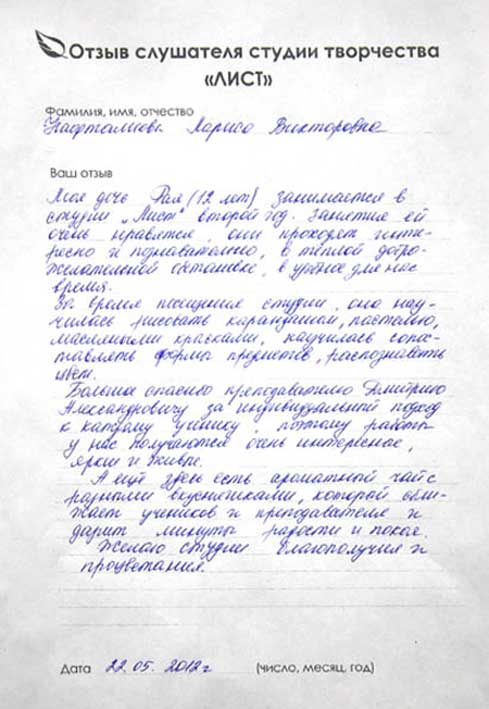 Отзыв слушателя студии творчества
«ЛИСТ»
Фамилия, имя, отчество
Лариса Викторовна
Ваш отзыв
Моя дочь Рая (12 лет) занимается в
студии „Лист" второй год. Занятия ей
очень нравятся, они проходят инте-
ресно и познавательно, в тёплой добро-
желательной обстановке, в удобное для нас
время.
За время посещения студии, она нау-
чилась рисовать карандашом, пастелью,
масляными красками, научилась сопос-
тавлять формы предметов, распознавать
цвет.
Большое спасибо преподавателю Дмитрию
Александровичу за индивидуальный подход
к каждому ученику, поэтому работы
у нас получаются очень интересные,
яркие и живые.
А ещё здесь есть ароматный чай с
разными вкусняшками, которой сбли-
жает учеников и преподавателя и
дарит минуты радости и покоя.
Желаю студии благополучия и
процветания.
Дата 22.05.2012г (число, месяц, год)